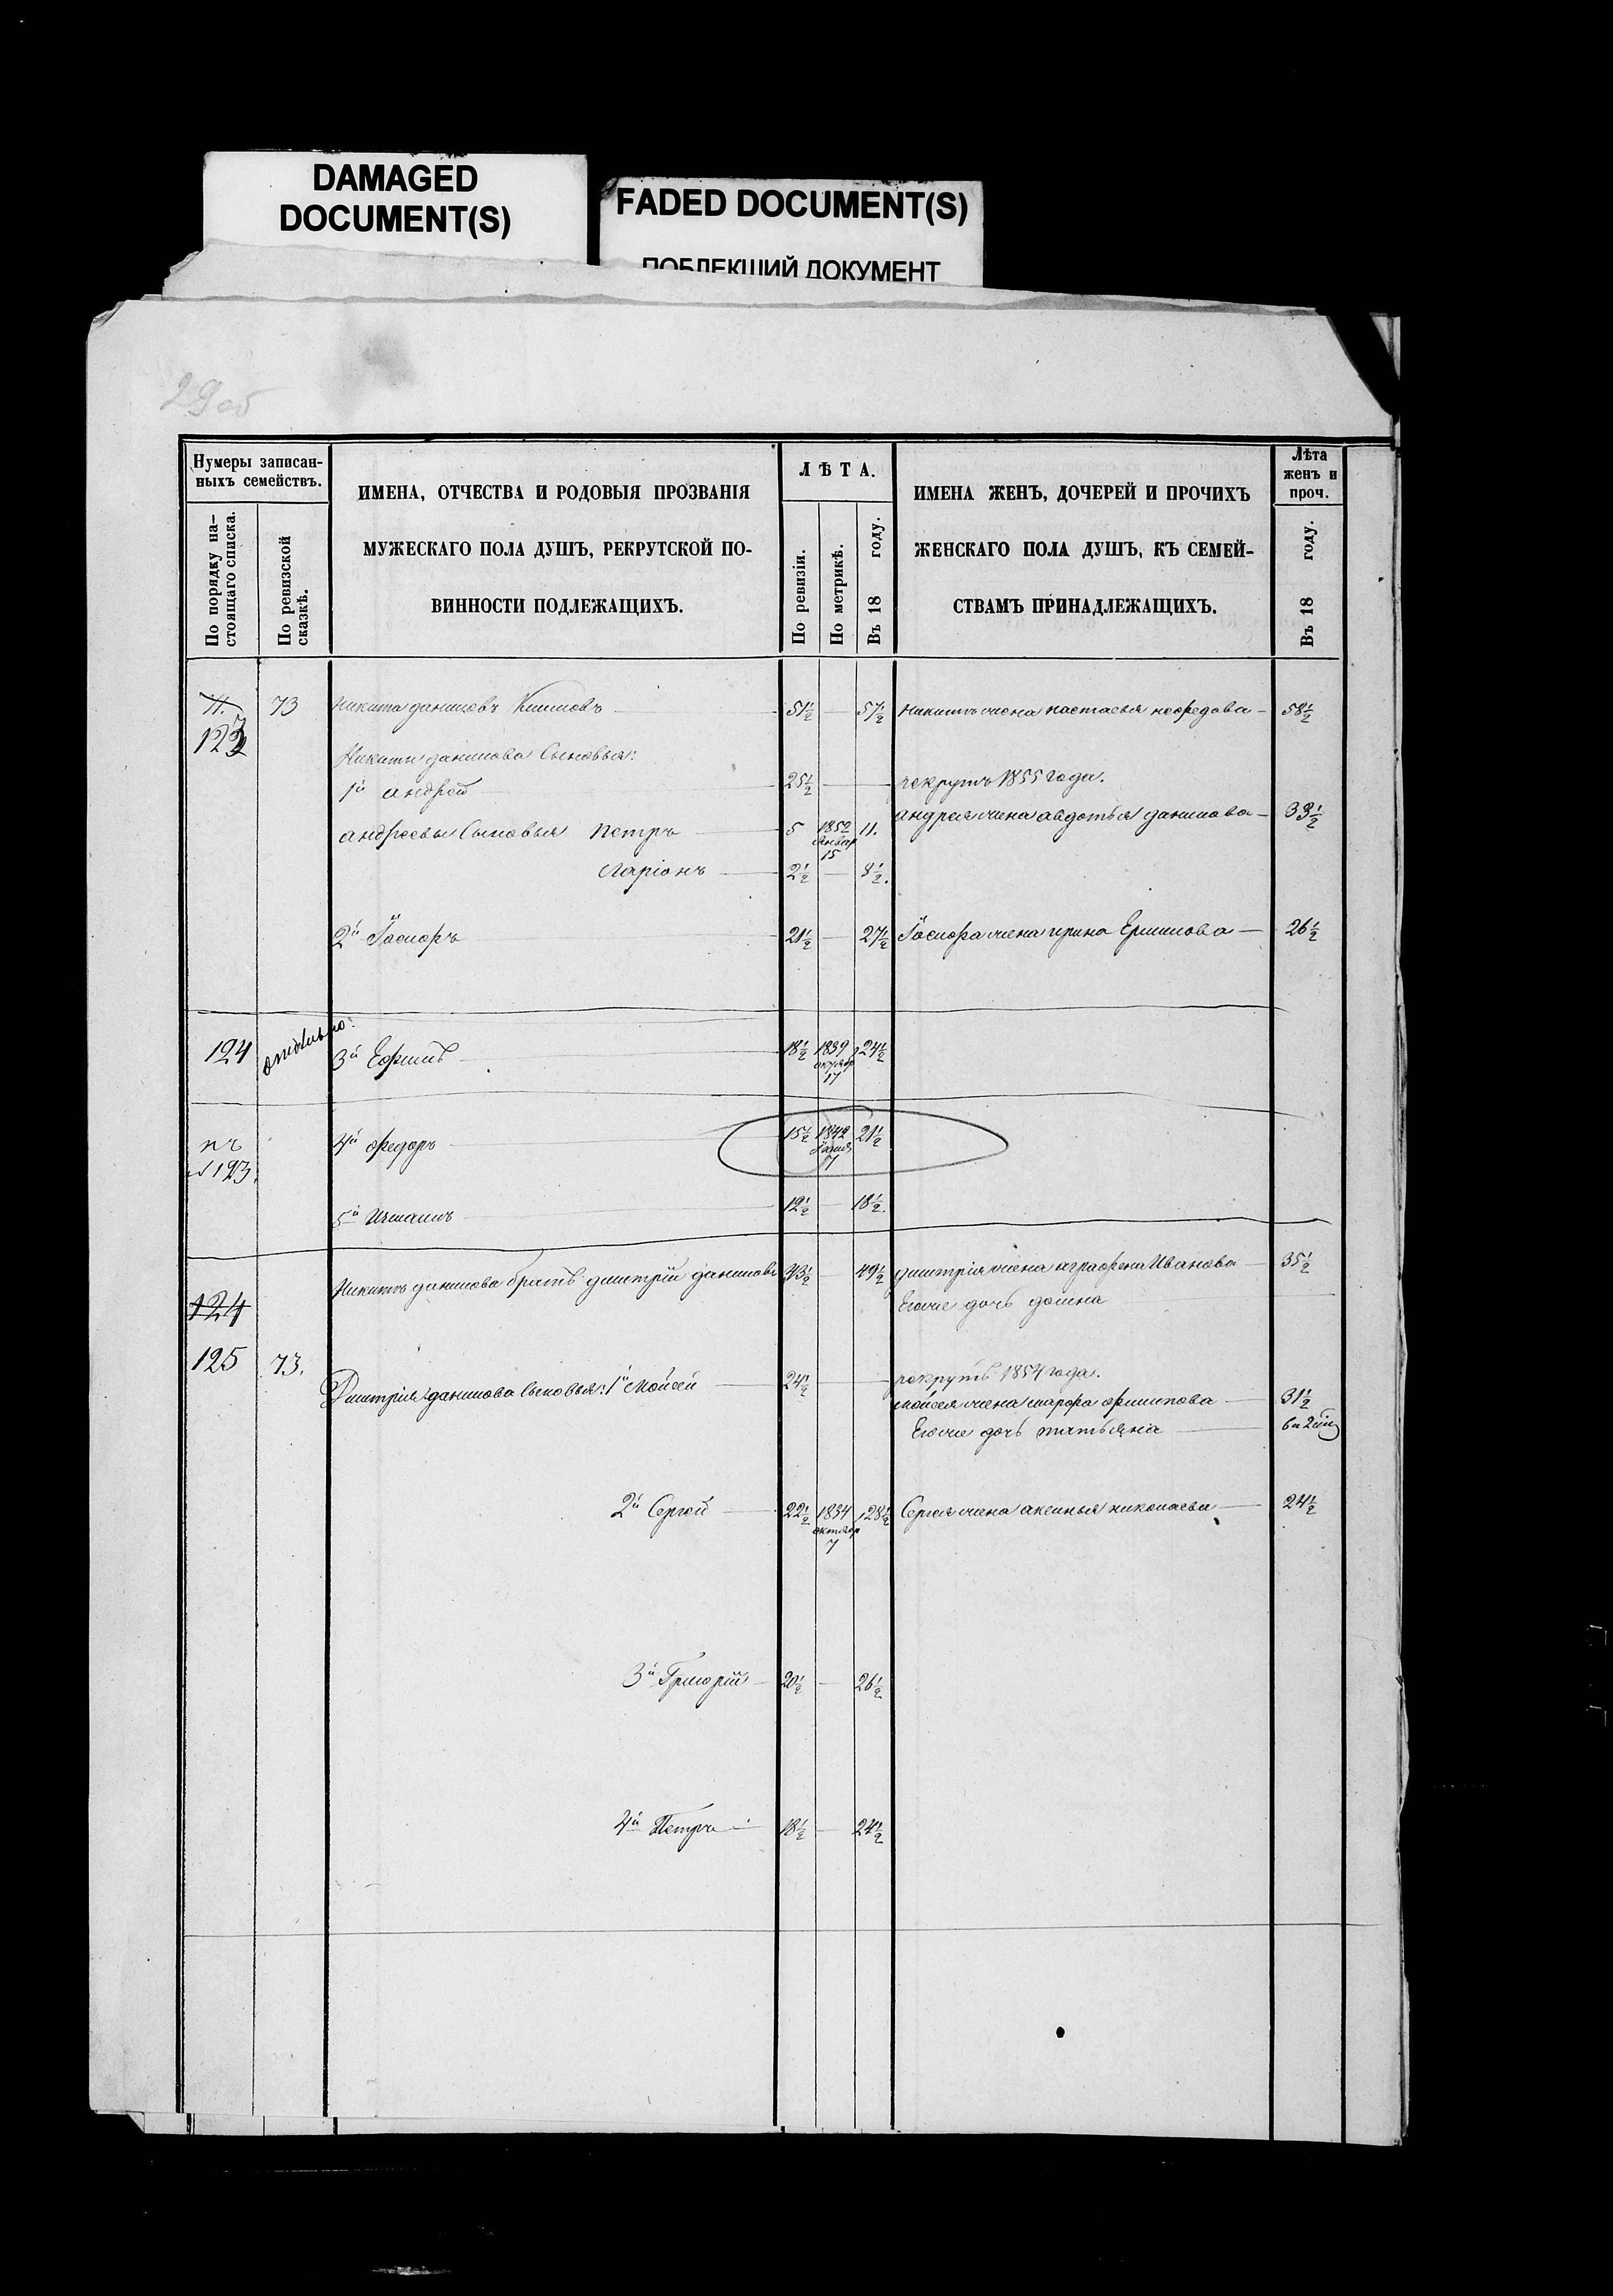 DAMAGED
DOCUMENT(S)
FADED DOCUMENT(S)
ПОБЛЕКШИЙ ДОКУМЕНТ
29 об
Нумеры записан-
ныхъ семействъ.
По порядку на-
стоящаго списка.
По ревизской
сказкѣ.
ИМЕНА, ОТЧЕСТВА И РОДОВЫЯ ПРОЗВАНІЯ
МУЖЕСКАГО ПОЛА ДУШЪ, РЕКРУТСКОЙ ПО-
ВИННОСТИ ПОДЛЕЖАЩИХЪ.
ЛѢТА.
По ревизіи.
По метрикѣ.
Въ 18 году.
ИМЕНА ЖЕНЪ, ДОЧЕРЕЙ И ПРОЧИХЪ
ЖЕНСКАГО ПОЛА ДУШЪ, КЪ СЕМЕЙ-
СТВАМЪ ПРИНАДЛЕЖАЩИХЪ.
Лѣта
женъ и
проч.
Въ 18 году.
73 Никита даниловъ 51½ 57½ жена настасья 58½
123
Никиты данилова Сыновья:
1й андрей 25½ рекрутъ 1855 года.
андрея жена авдотья данилова 33½
андреевы Сыновья Петръ 5 1852 январ 15 11.
Ларіонъ 2½ 8½.
2й 21½ 27½ жена ирина 26½
124 отдѣльно: 3й Ефимъ 18½ 1839 17 24½
къ №123. 4й федоръ 15½ 1842 21½
5й 12½ 18½.
Никиты данилова братъ дмитрій даниловъ 43½ 49½ дмитрія жена аграфена Иванова 35½
Егоже дочь домна
124
125 73.
Дмитрія данилова сыновья: 1й Мойсей 24½ рекрутъ 1854 года.
мойсея жена марфа филипова 31½
Егоже дочь татьяна
2й Сергей 22½ 1834 октябр 7 28½ Сергея жена аксинья николаева 24½
3й Григорій 20½ 26½
4й Петръ 18½ 24½